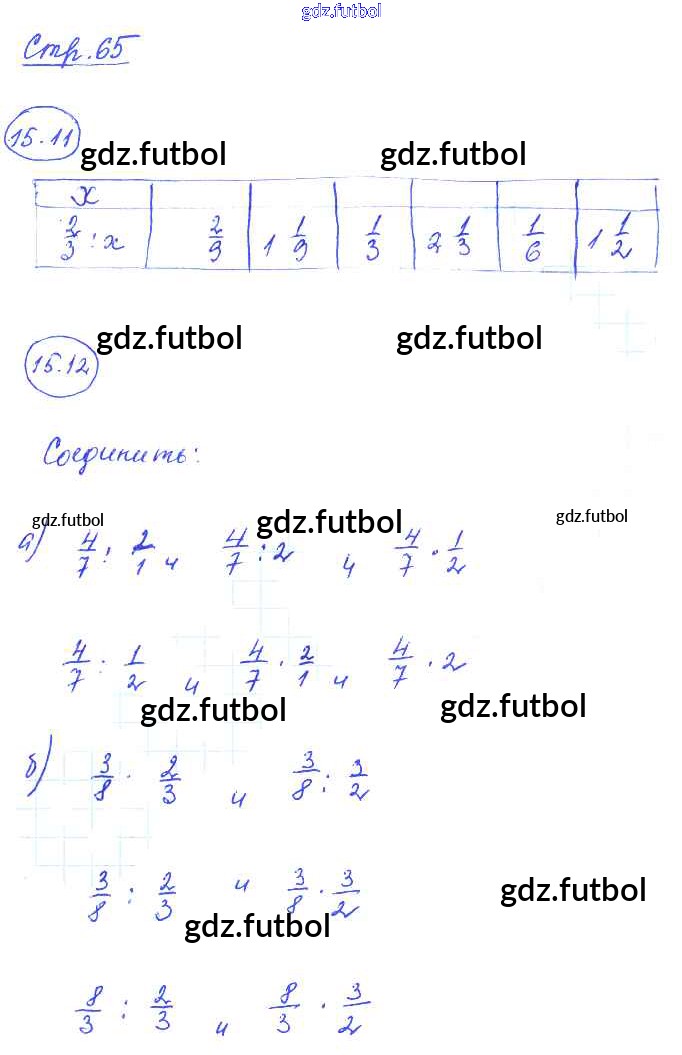 gdz.futbol
Стр. 65
15.11
gdz.futbol gdz.futbol
x
2/3 : x 2/9 1 1/9 1/3 2 1/3 1/6 1 1/2
gdz.futbol gdz.futbol
15.12
Соединить:
gdz.futbol gdz.futbol gdz.futbol
а) 4/7 : 2/1 и 4/7 : 2 и 4/7 · 1/2
4/7 : 1/2 и 4/7 · 2/1 и 4/7 · 2
gdz.futbol gdz.futbol
б) 3/8 · 2/3 и 3/8 : 3/2
3/8 : 2/3 и 3/8 · 3/2
gdz.futbol gdz.futbol
8/3 : 2/3 и 8/3 · 3/2